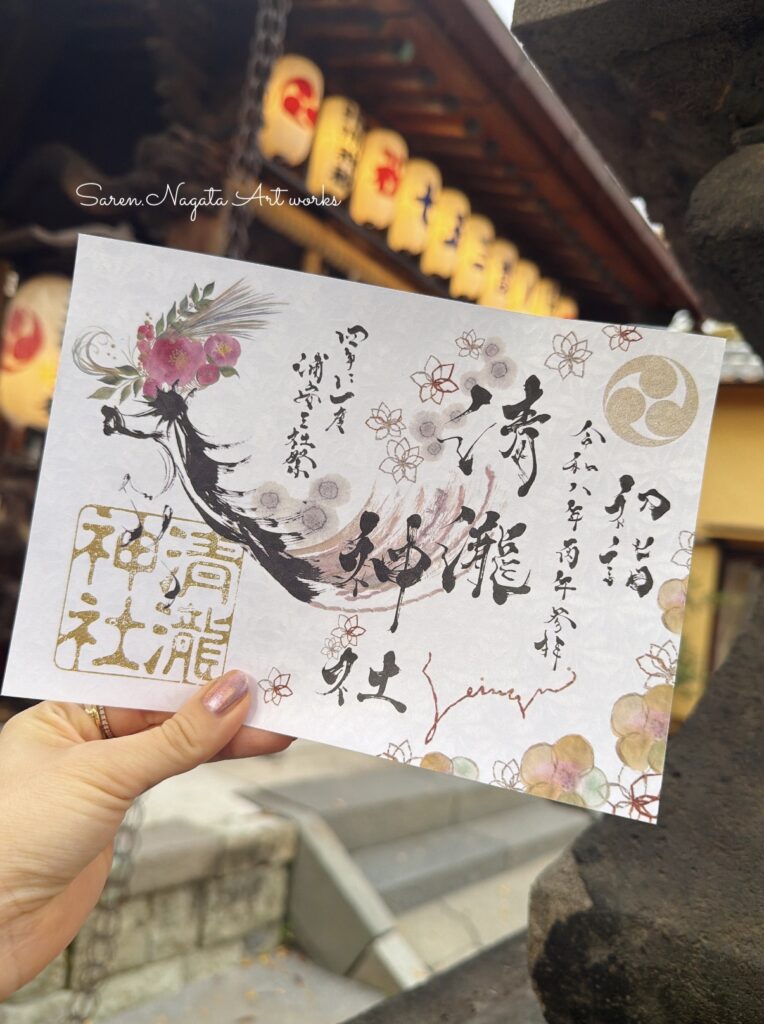 Saren.Nagata Art works
七
五
三
初詣
令和八年 丙午 参拝
清瀧
神社
四年に一度
浦安三社祭
清瀧
神社